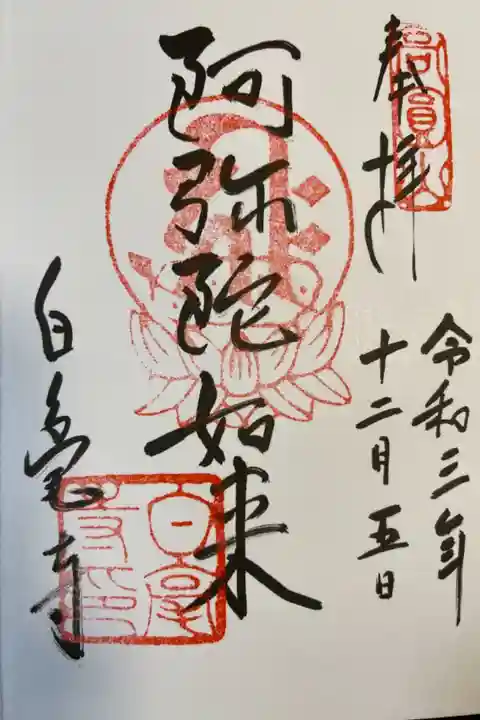 奉拝
令和三年
十二月五日
阿弥陀如来
白毫寺
高圓山